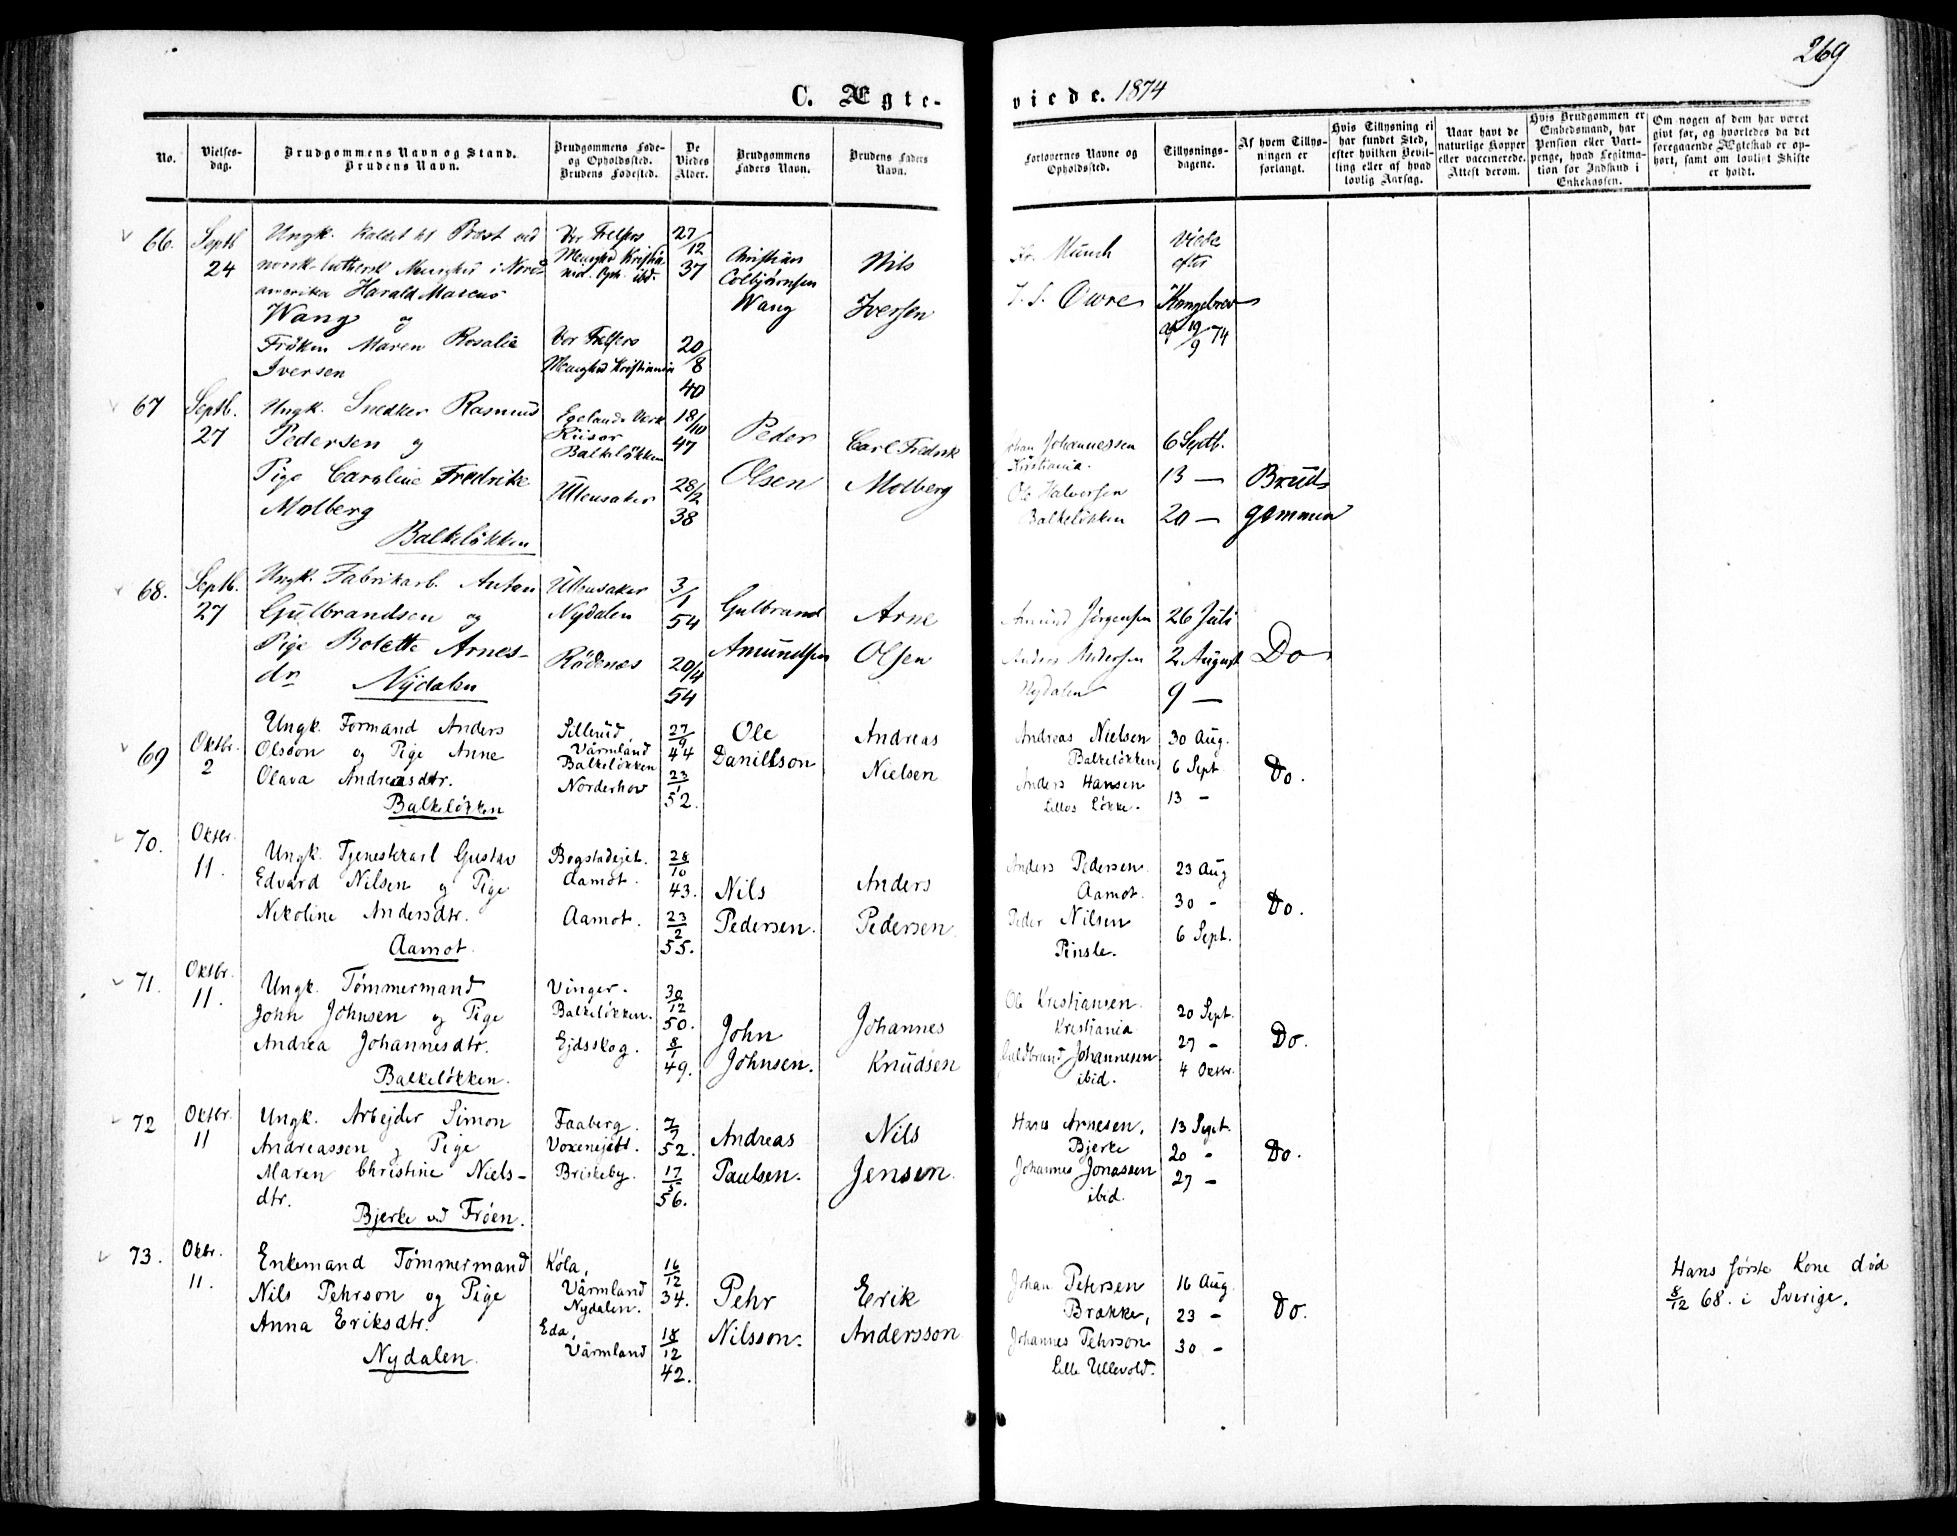 269
C. Ægte-
viede. 1874
No.
Vielses-
dag.
Brudgommens Navn og Stand.
Brudens Navn.
Brudgommens Føde-
og Opholdssted.
Brudens Fødested.
De
Viedes
Alder.
Brudgommens
Faders Navn.
Brudens Faders
Navn.
Forlovernes Navne og
Opholdssted.
Tillysnings-
dagene.
Af hvem Tillys-
ningen er
forlangt.
Hvis Tillysning ei
har fundet Sted,
efter hvilken Bevil-
ling eller af hvad
lovlig Aarsag.
Naar havt de
naturlige Kopper
eller vaccinerede.
Attest derom.
Hvis Brudgommen er
Embedsmand, har
Pension eller Vart-
penge, hvad Legitima-
tion for Indskud i
Enkekassen.
Om nogen af dem har været
givt før, og hvorledes da det
foregaaende Ægteskab er op-
hørt, samt om lovligt Skifte
er holdt.
66.
Septb
24
Ungk. kaldet til Præst ved
norsk-luthersk Menighed i Nord-
amerika Harald Marcus
Wang og
Frøken Maren Rosalie
Iversen
Vor Frelsers
Menighed Kristia-
nia. Oph. ibd.
Vor Frelsers
Menighed Kristiania
27/12
37
20/8
40
Christian
Colbjørnsen
Wang
Nils
Iversen
Kr. Munch
J. S. Owre
Viede
efter
Kongebrev
af 19/9 74
67
Septb.
27
Ungk. Snedker Rasmus
Pedersen og
Pige Caroline Fredrike
Molberg
Balkeløkken
Egelands Verk
Riisør
Balkeløkken
Ullensaker
18/10
47
28/2
38
Peder
Olsen
Carl Fredrik
Molberg
Johan Johannessen
Kristiania.
Ole Halvorsen
Balkeløkken
6 Septb.
13 —
20 —
Brud-
gommen
68.
Septb.
27
Ungk. Fabrikarb. Anton
Gulbrandsen og
Pige Bolette Arnes-
dr
Nydalen
Ullensaker
Nydalen
Rødenæs
3/1
54
20/4
54
Gulbrand
Amundsen
Arne
Olsen
Amund Jørgensen
Anders Andersen
Nydalen
26 Juli
2 August
9 —
Do
69
Oktbr.
2
Ungk. Formand Anders
Olsson og Pige Anne
Olava Andreasdtr.
Balkeløkken
Sillerud
Värmland
Balkeløkken
Norderhov
27/9
44
23/1
52.
Ole
Daniellson
Andreas
Nielsen
Andreas Nielsen
Balkeløkken,
Anders Hansen
Lillos Løkke.
30 Aug.
6 Sept
13 -
Do.
70.
Oktbr.
11.
Ungk. Tjenestkarl Gustav
Edvard Nilsen og Pige
Nikoline Andersdtr.
Aamot.
Bogstadejet.
Aamot.
Aamot.
28/10
43.
23/2
55.
Nils
Pedersen.
Anders
Pedersen.
Anders Pedersen.
Aamot.
Peder Nilsen
Pinsle.
23 Aug
30 -
6 Sept.
Do.
71.
Oktbr.
11.
Ungk. Tømmermand
John Johnsen og Pige
Andrea Johannesdtr.
Balkeløkken.
Vinger.
Balkeløkken.
Ejdsskog.
30/12
50.
8/1
49.
John
Johnsen.
Johannes
Knudsen
Ole Kristiansen.
Kristiania
Guldbrand Johannesen.
ibid.
20 Sept.
27 -
4 Oktbr.
Do.
72
Oktbr.
11
Ungk. Arbejder Simon
Andreassen og Pige
Maren Christine Niels-
dtr.
Bjerke ved Frøen.
Faaberg.
Voxenejet.
Briskeby.
7/9
52.
17/5
56.
Andreas
Paulsen.
Nils
Jensen.
Hans Arnesen,
Bjerke
Johannes Jonassen
ibid.
13 Sept.
20 -
27 -
Do.
73.
Oktbr.
11.
Enkemand Tømmermand
Nils Pehrson og Pige
Anna Eriksdtr.
Nydalen.
Køla,
Värmland
Nydalen.
Eda,
Värmland
16/12
34.
18/12
42.
Pehr
Nilsson.
Erik
Andersson
Johan Petersen
Brække,
Johannes Pehrson
Lille Ullevold.
16 Aug.
23 -
30 -
Do.
Hans første Kone død
8/12 68. i Sverige.